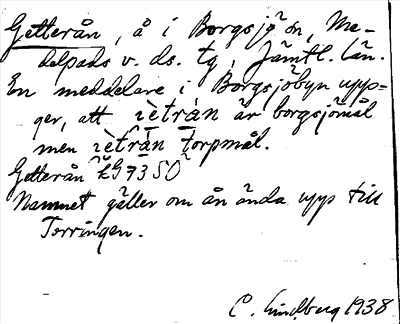 Getterån, å i Borgsjö sn, Me-
delpads v. ds. tg, Jämtl. län.
En meddelare i Borgsjöbyn upp-
ger, att ìetrán är borgsjömål
men ìetrån torpmål.
Getterån EG 73 SO
Namnet gäller om ån ända upp till
Torringen.
C. Lindberg 1938